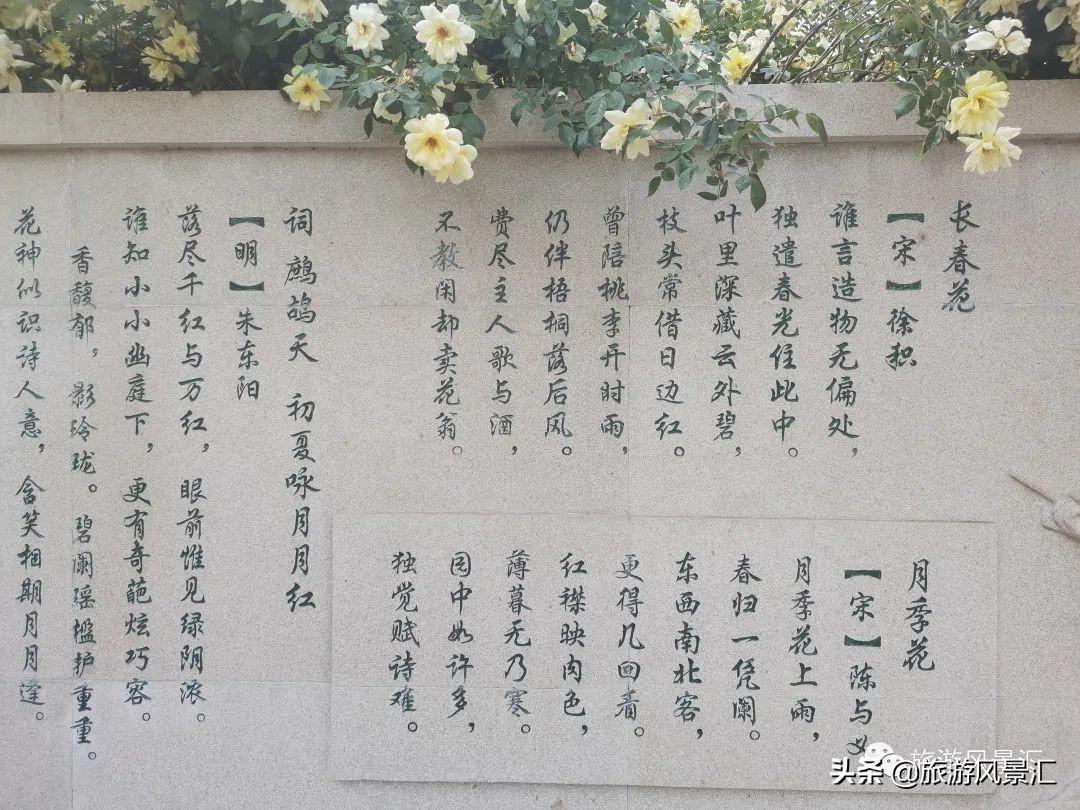 长春花
【宋】徐积
谁言造物无偏处，
独遣春光住此中。
叶里深藏云外碧，
枝头常借日边红。
曾陪桃李开时雨，
仍伴梧桐落后风。
费尽主人歌与酒，
不教闲却卖花翁。
月季花
【宋】陈与义
月季花上雨，
春归一凭阑。
东西南北客，
更得几回看。
红襟映肉色，
薄暮无乃寒。
园中如许多，
独觉赋诗难。
词 鹧鸪天 初夏咏月月红
【明】朱东阳
落尽千红与万红，眼前惟见绿阴浓。
谁知小小幽庭下，更有奇葩炫巧容。
香馥郁，影玲珑。碧阑瑶槛护重重。
花神似识诗人意，含笑相期月月逢。
旅游风景汇
头条@旅游风景汇